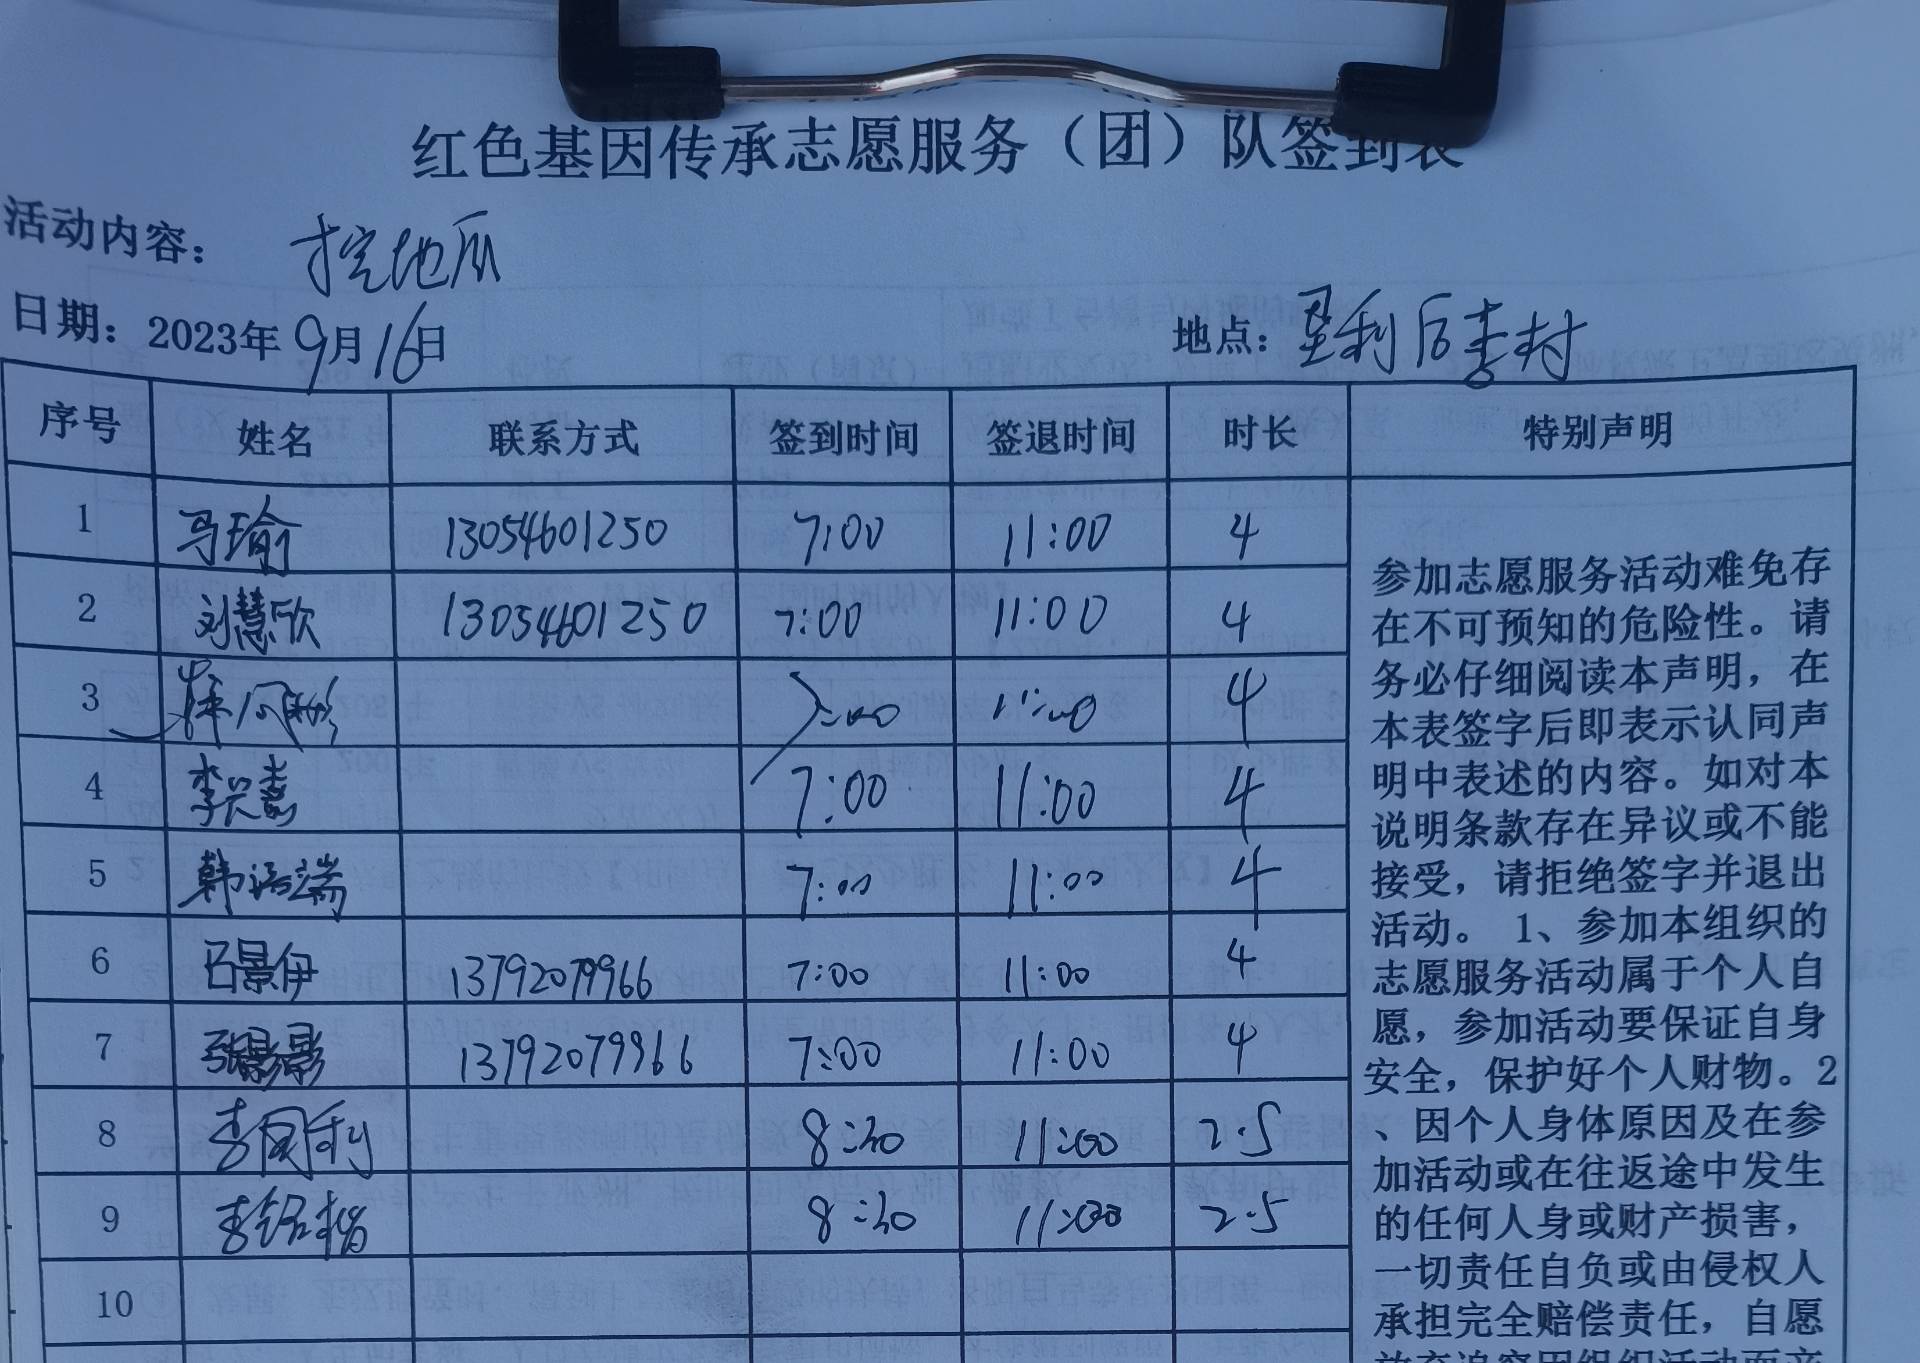 红色基因传承志愿服务（团）队签到表
活动内容： 挖地瓜
日期：2023年9月16日 地点：垦利后李村
序号 姓名 联系方式 签到时间 签退时间 时长 特别声明
1 马瑜 13054601250 7:00 11:00 4
2 刘慧欣 13054601250 7:00 11:00 4
3 7:00 11:00 4
4 李兴嘉 7:00 11:00 4
5 韩语端 7:00 11:00 4
6 石景伊 13792079966 7:00 11:00 4
7 张影影 13792079966 7:00 11:00 4
8 李国利 8:30 11:00 2.5
9 李铭楷 8:30 11:00 2.5
10
参加志愿服务活动难免存
在不可预知的危险性。请
务必仔细阅读本声明，在
本表签字后即表示认同声
明中表述的内容。如对本
说明条款存在异议或不能
接受，请拒绝签字并退出
活动。 1、参加本组织的
志愿服务活动属于个人自
愿，参加活动要保证自身
安全，保护好个人财物。2
、因个人身体原因及在参
加活动或在往返途中发生
的任何人身或财产损害，
一切责任自负或由侵权人
承担完全赔偿责任，自愿